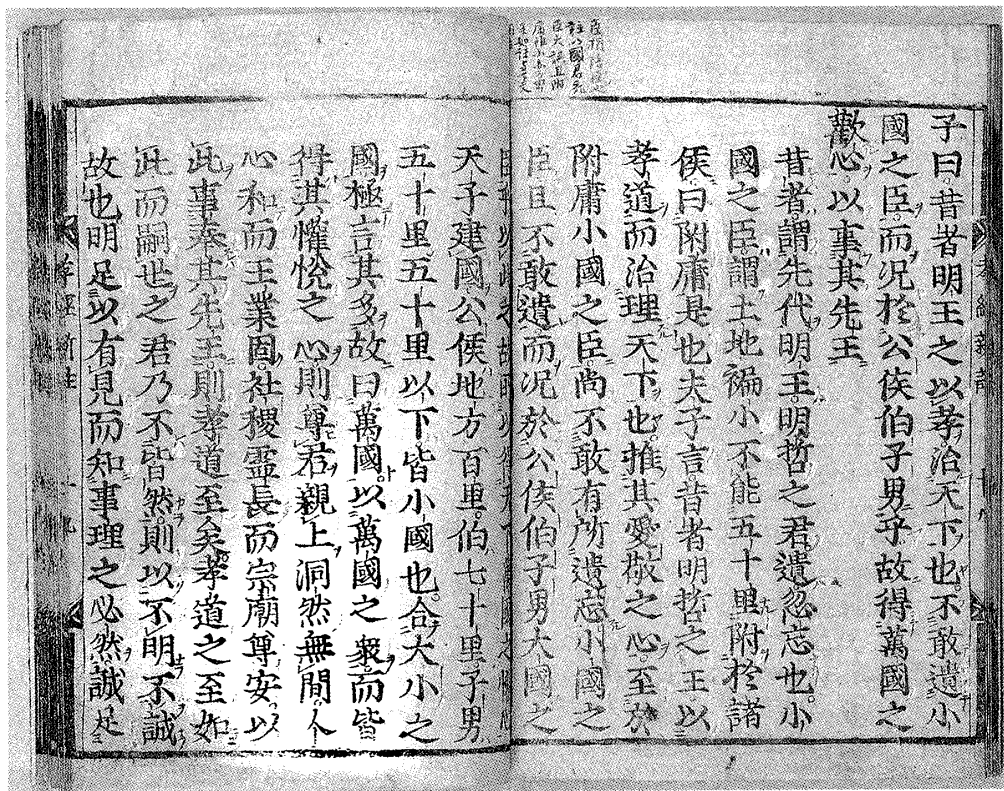 子曰昔者明王之以孝治天下也不敢遺小
國之臣而况於公侯伯子男乎故得萬國之
歡心以事其先王
昔者謂先代明王明哲之君遺忽忘也小
國之臣謂土地褊小不能五十里附於諸
侯曰附庸是也夫子言昔者明哲之王以
孝道而治理天下也推其愛敬之心至於
附庸小國之臣尚不敢有所遺忘小國之
臣且不敢遺而况於公侯伯子男大國之
天子建國公侯地方百里伯七十里子男
五十里五十里以下皆小國也合大小之
國極言其多故曰萬國以萬國之衆而皆
得其懽悅之心則尊君親上洞然無間人
心和而王業固社稷靈長而宗廟尊安以
此事奉其先王則孝道至矣孝道之至如
此而嗣世之君乃不皆然則以不明不誠
故也明足以有見而知事理之必然誠足